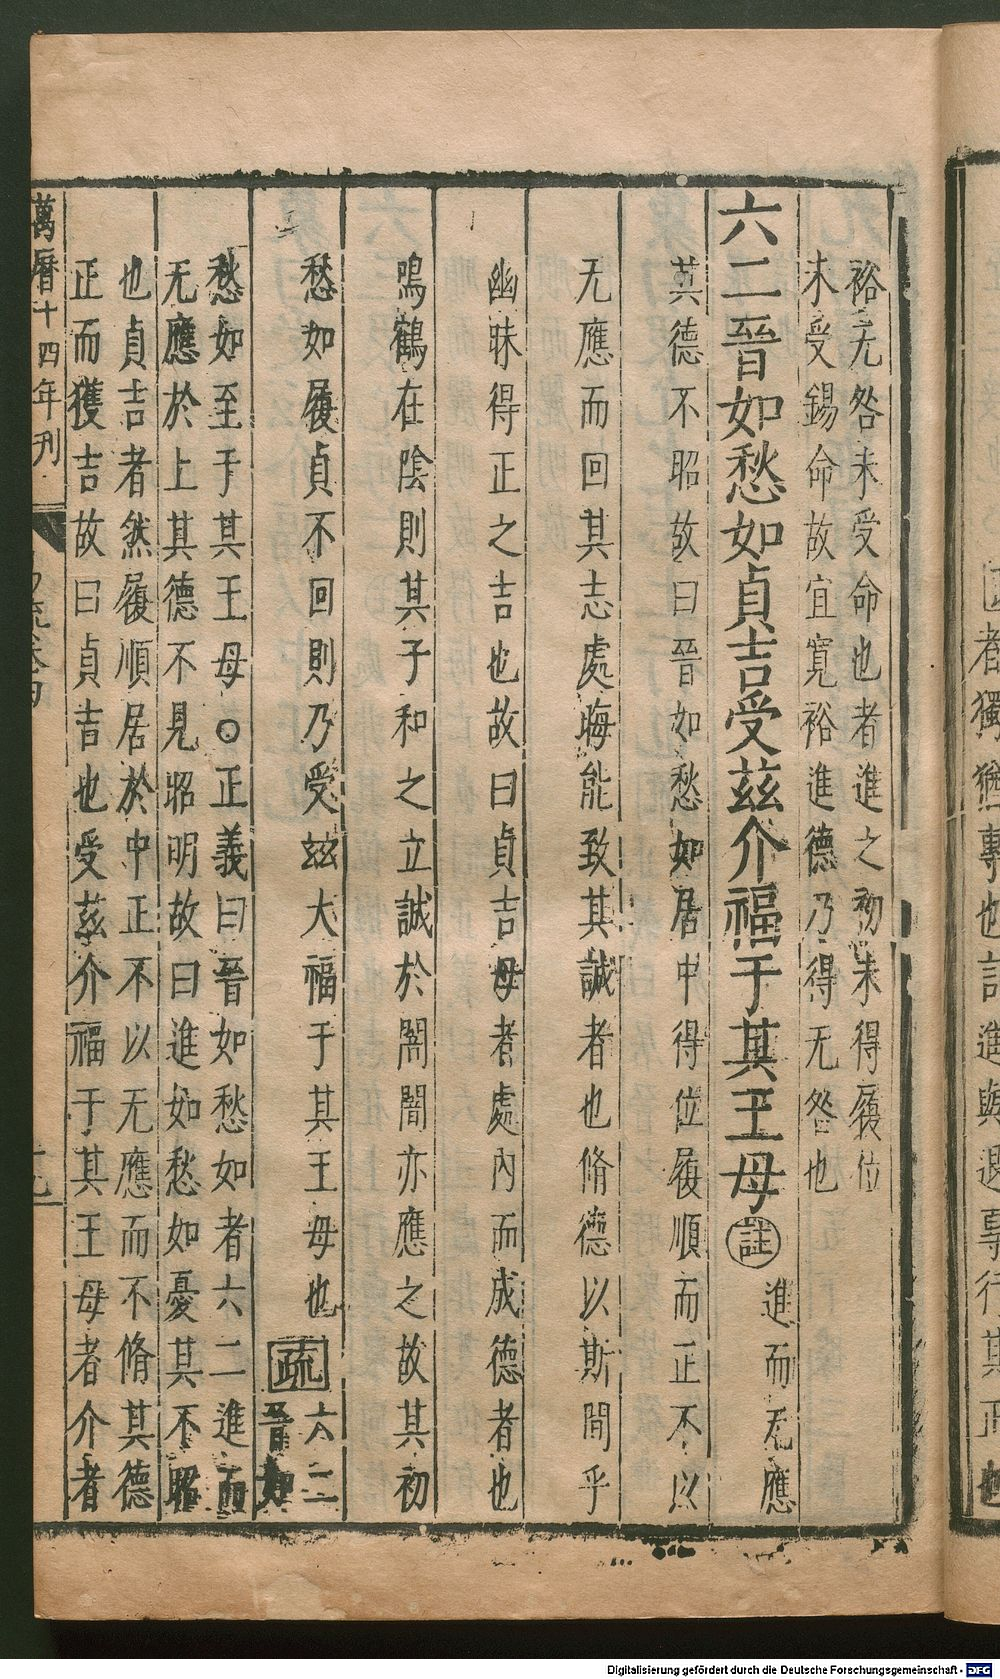 裕无咎未受命也者進之初未得履位
未受錫命故宜寬裕進德乃得无咎也
六二晉如愁如貞吉受茲介福于其王母註進而无應
其德不昭故曰晉如愁如居中得位履順而正不以
无應而回其志處晦能致其誠者也脩德以斯聞乎
幽昧得正之吉也故曰貞吉母者處內而成德者也
鳴鶴在陰則其子和之立誠於闇闇亦應之故其初
愁如履貞不回則乃受茲大福于其王母也疏六二
晉如
愁如至于其王母○正義曰晉如愁如者六二進而
无應於上其德不見昭明故曰進如愁如憂其不昭
也貞吉者然履順居於中正不以无應而不脩其德
正而獲吉故曰貞吉也受茲介福于其王母者介者
萬曆十四年刊
者獨猶專也言進與退專行其正也
Digitalisierung gefördert durch die Deutsche Forschungsgemeinschaft - DFG